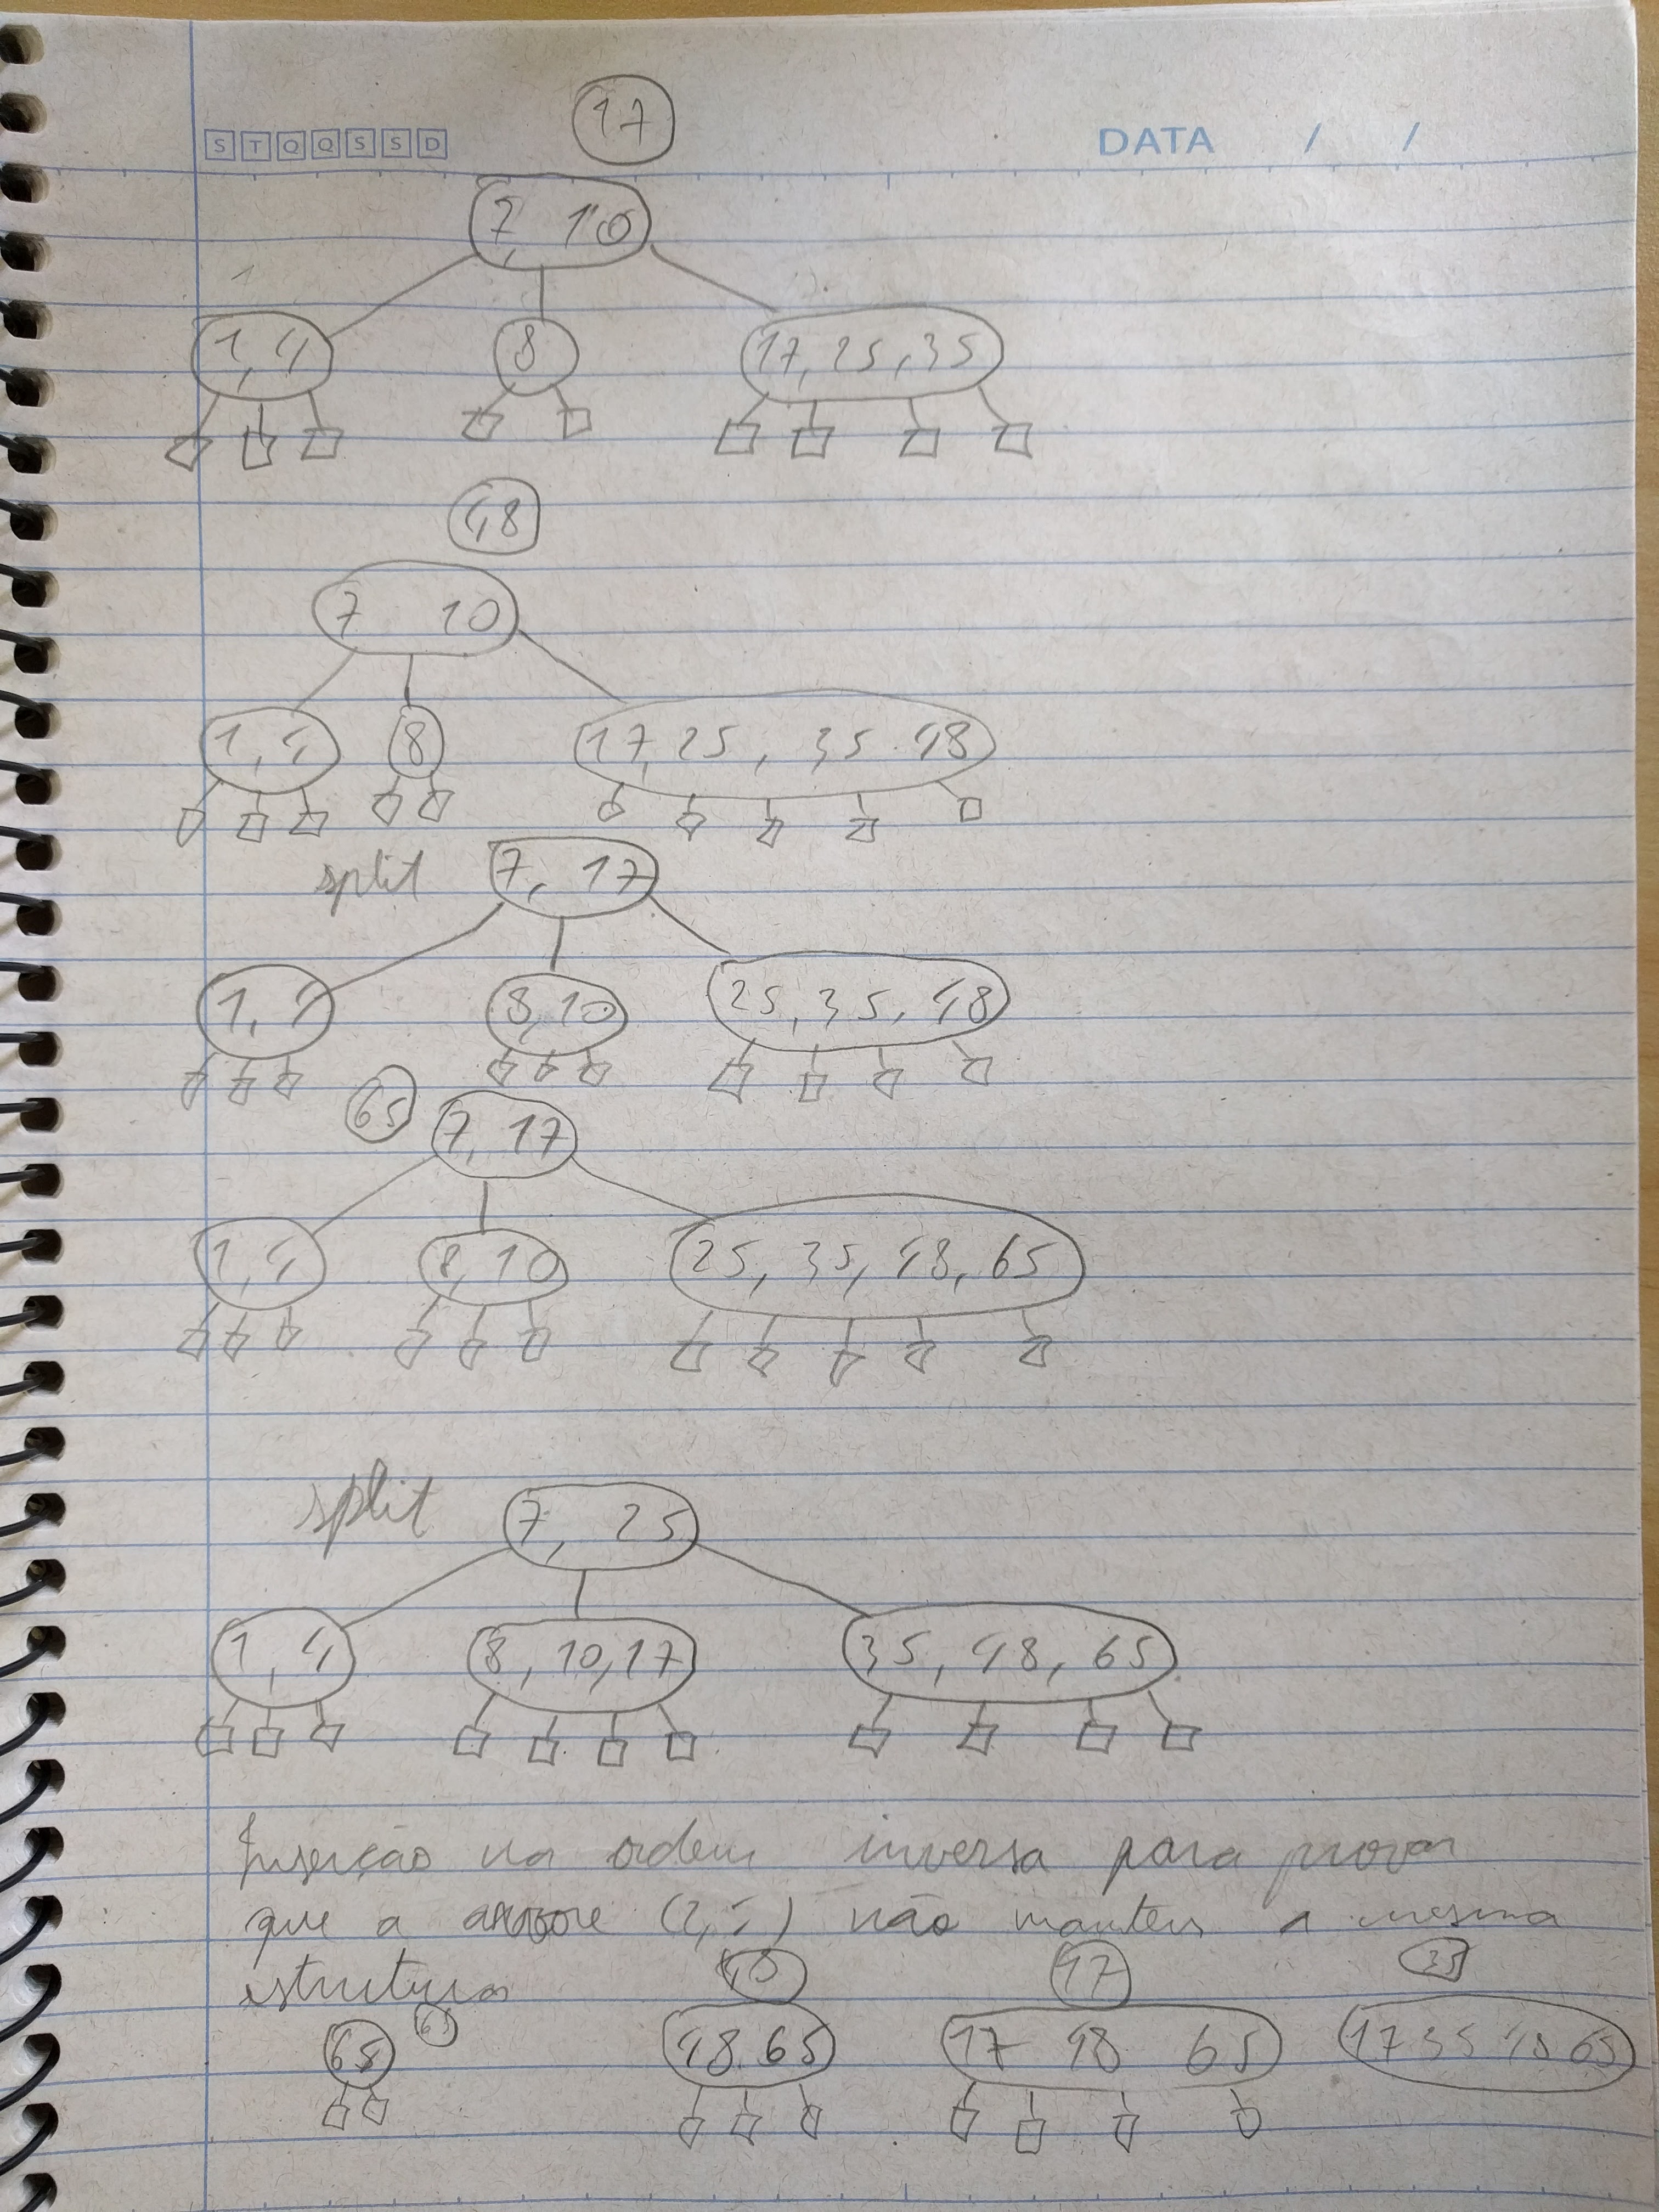 17
S T Q Q S S D DATA / /
7, 10
1, 4 8 17, 25, 35
48
7 10
1, 4 8 17, 25, 35 48
split 7, 17
1, 4 8, 10 25, 35, 48
65 7, 17
1, 4 8, 10 25, 35, 48, 65
split 7, 25
1, 4 8, 10, 17 35, 48, 65
Inserção na ordem inversa para provar
que a arvore (2,4) não mantem a mesma
estrutura 48 17 35
65 65 48 65 17 48 65 17 35 48 65